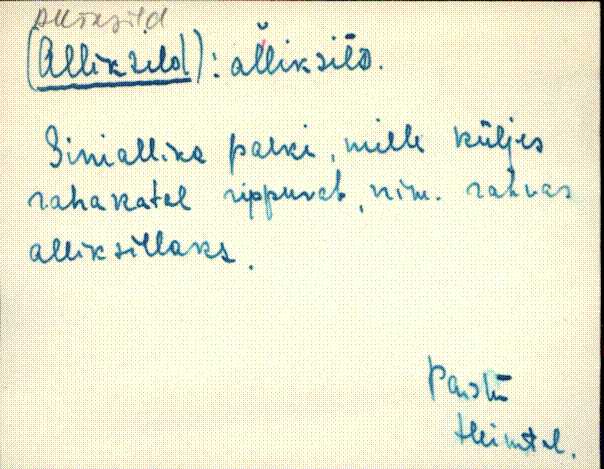 Allik sild
(Allik sild): al̆liksilD.
Siniallika palki, mille küljes
rahakatel rippuvat, nim. rahvas
alliksillaks.
Paistu
Heimtal.